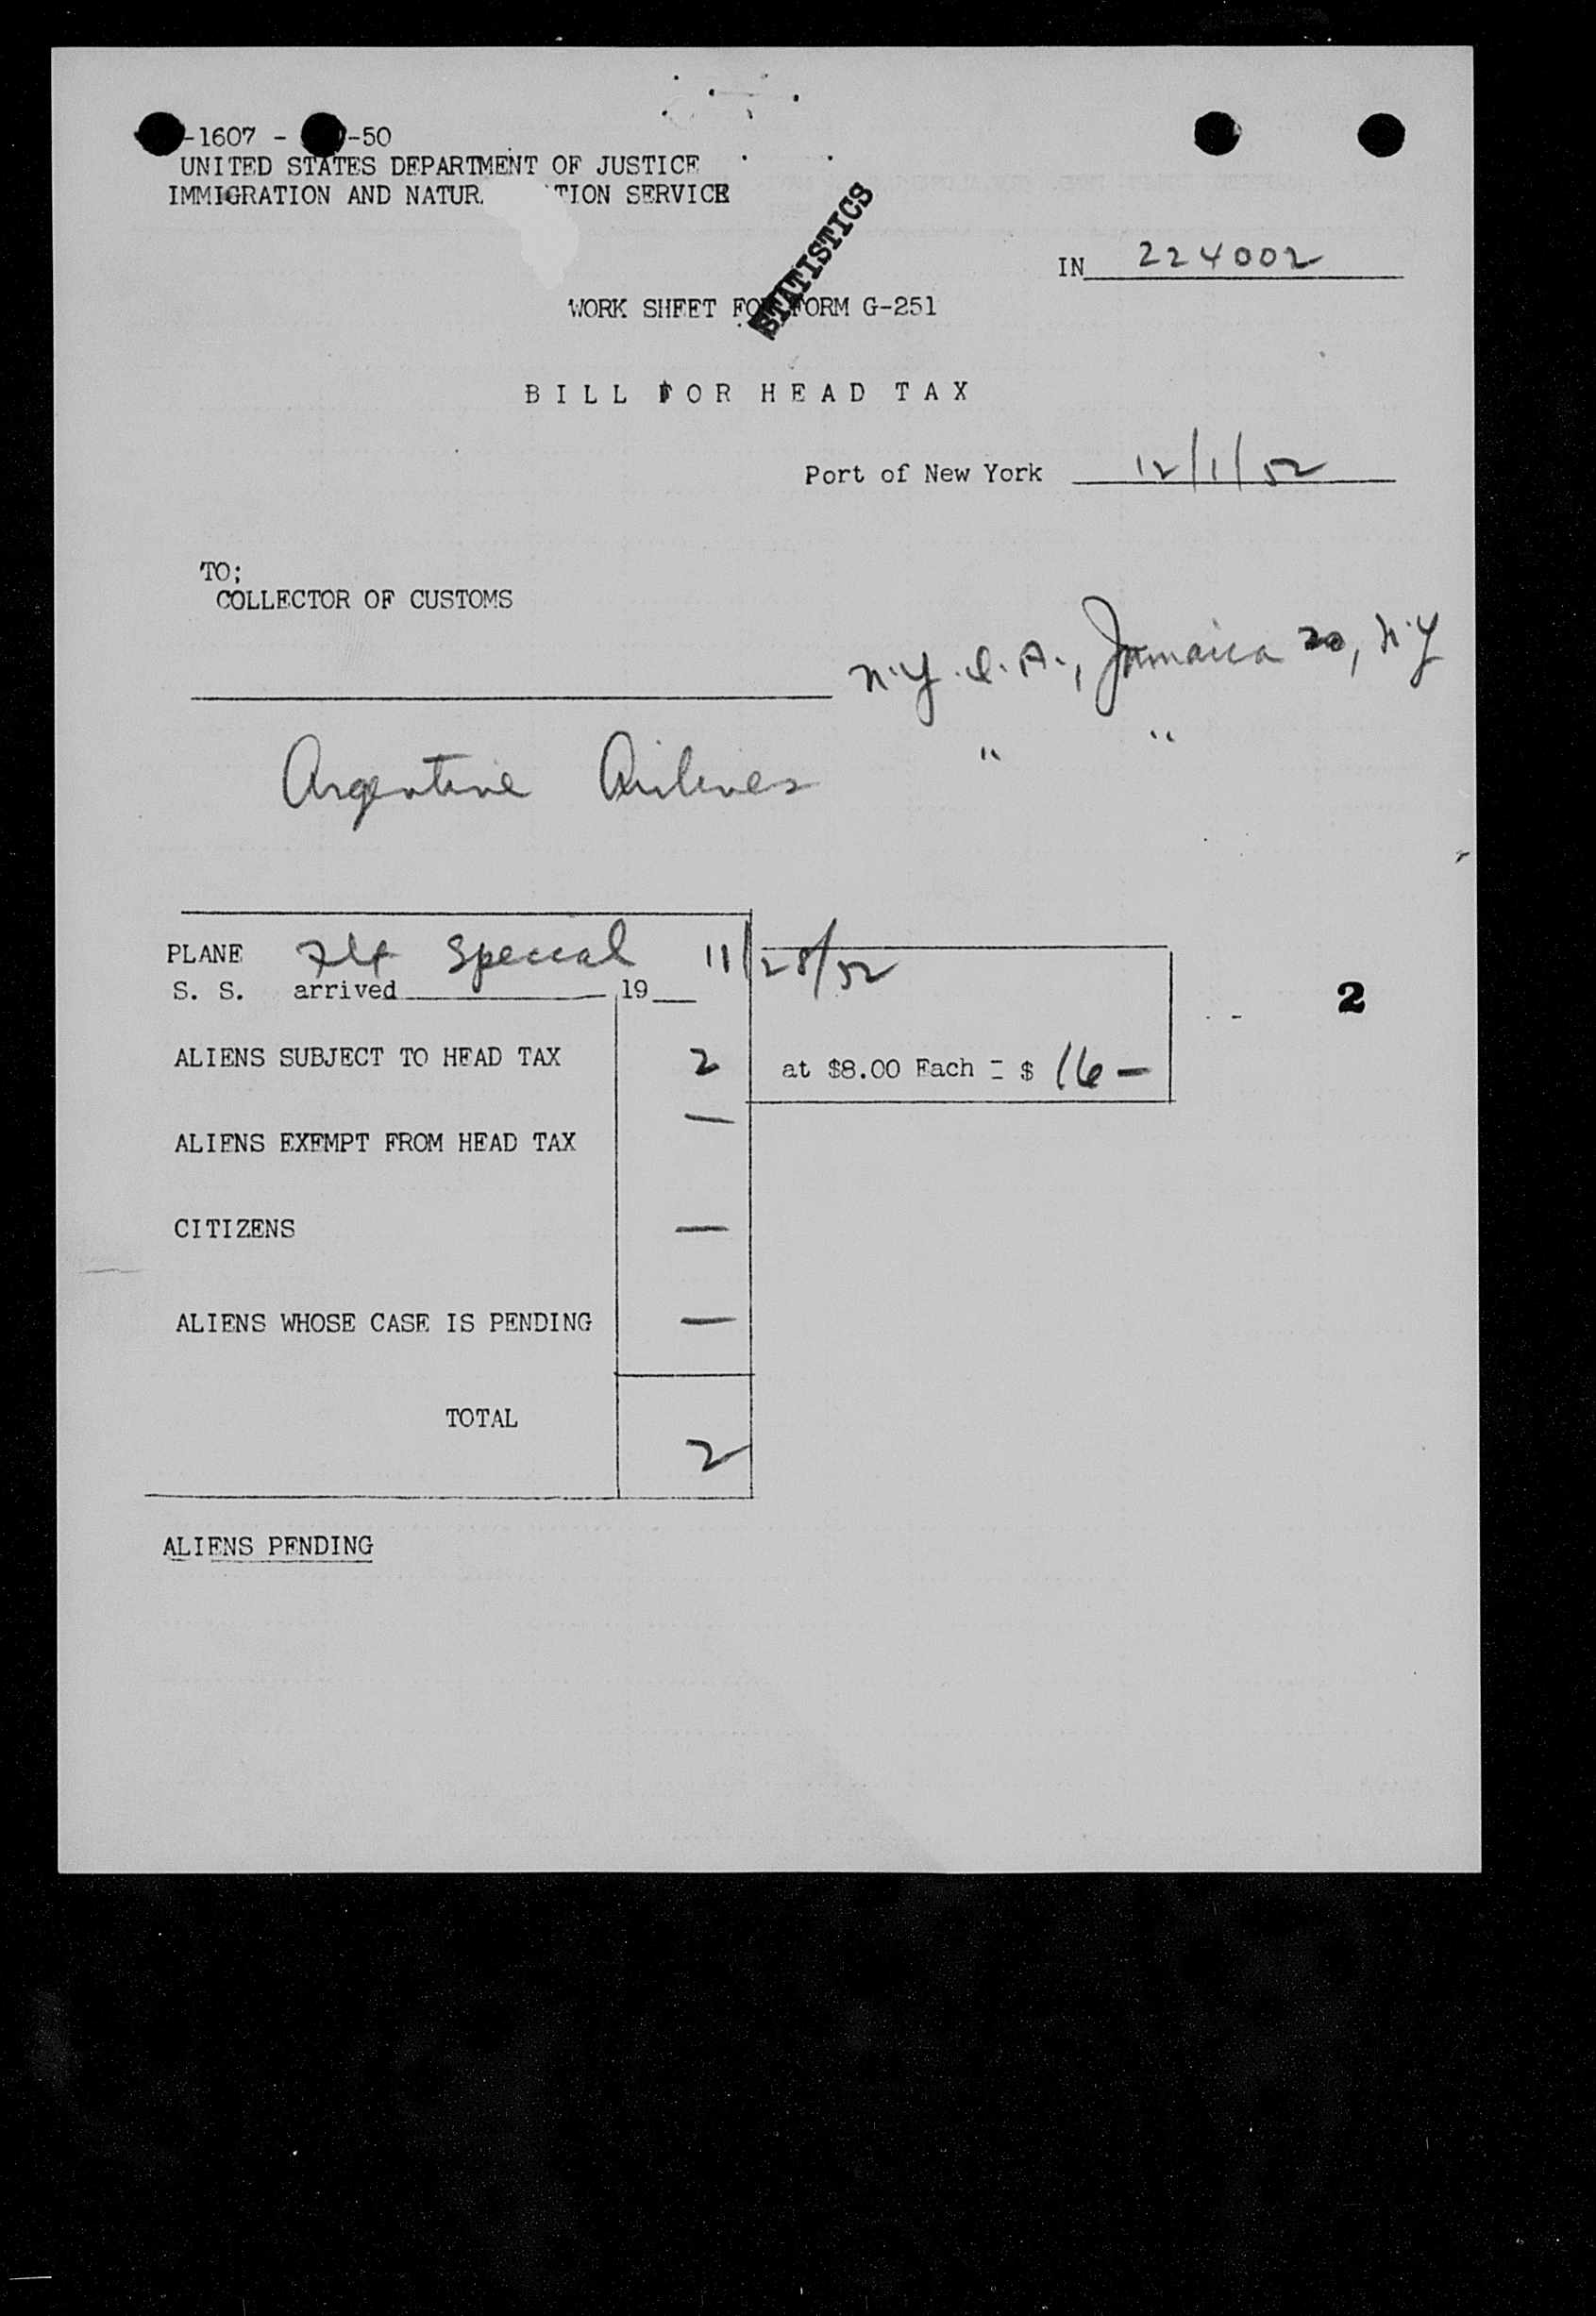 -1607 - -50
UNITED STATES DEPARTMENT OF JUSTICE
IMMIGRATION AND NATUR TION SERVICE
STATISTICS
IN 224002
WORK SHEET FOR FORM G-251
BILL FOR HEAD TAX
Port of New York 12/1/52
TO;
COLLECTOR OF CUSTOMS
N.Y.I.A., Jamaica 30, N.Y
Argentine Airlines " "
PLANE Flt Special 11/28/52
S. S. arrived 19
2
ALIENS SUBJECT TO HEAD TAX 2 at $8.00 Each = $ 16 —
ALIENS EXEMPT FROM HEAD TAX —
CITIZENS —
ALIENS WHOSE CASE IS PENDING —
TOTAL 2
ALIENS PENDING